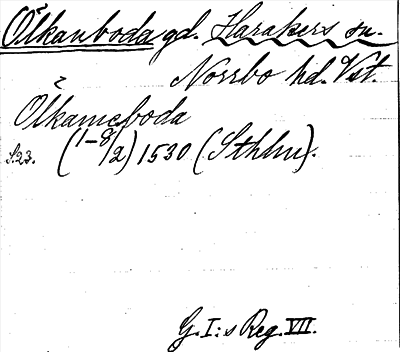 Ölkanboda gd. Harakers sn.
Norrbo hd. Vst.
Ölkameboda
S.23. (1-8/2) 1530 (Sthlm).
G. I:s Reg. VII.